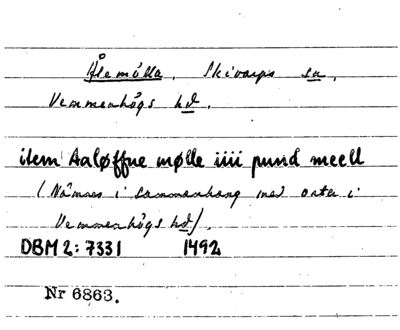 Ålemölla. Skivarps sn.
Vemmenhögs hd.
item Aaløffue mølle iiii pund meell
(Nämnes i sammanhang med orter i
Vemmenhögs hd).
DBM 2: 7331 1492
Nr 6863.